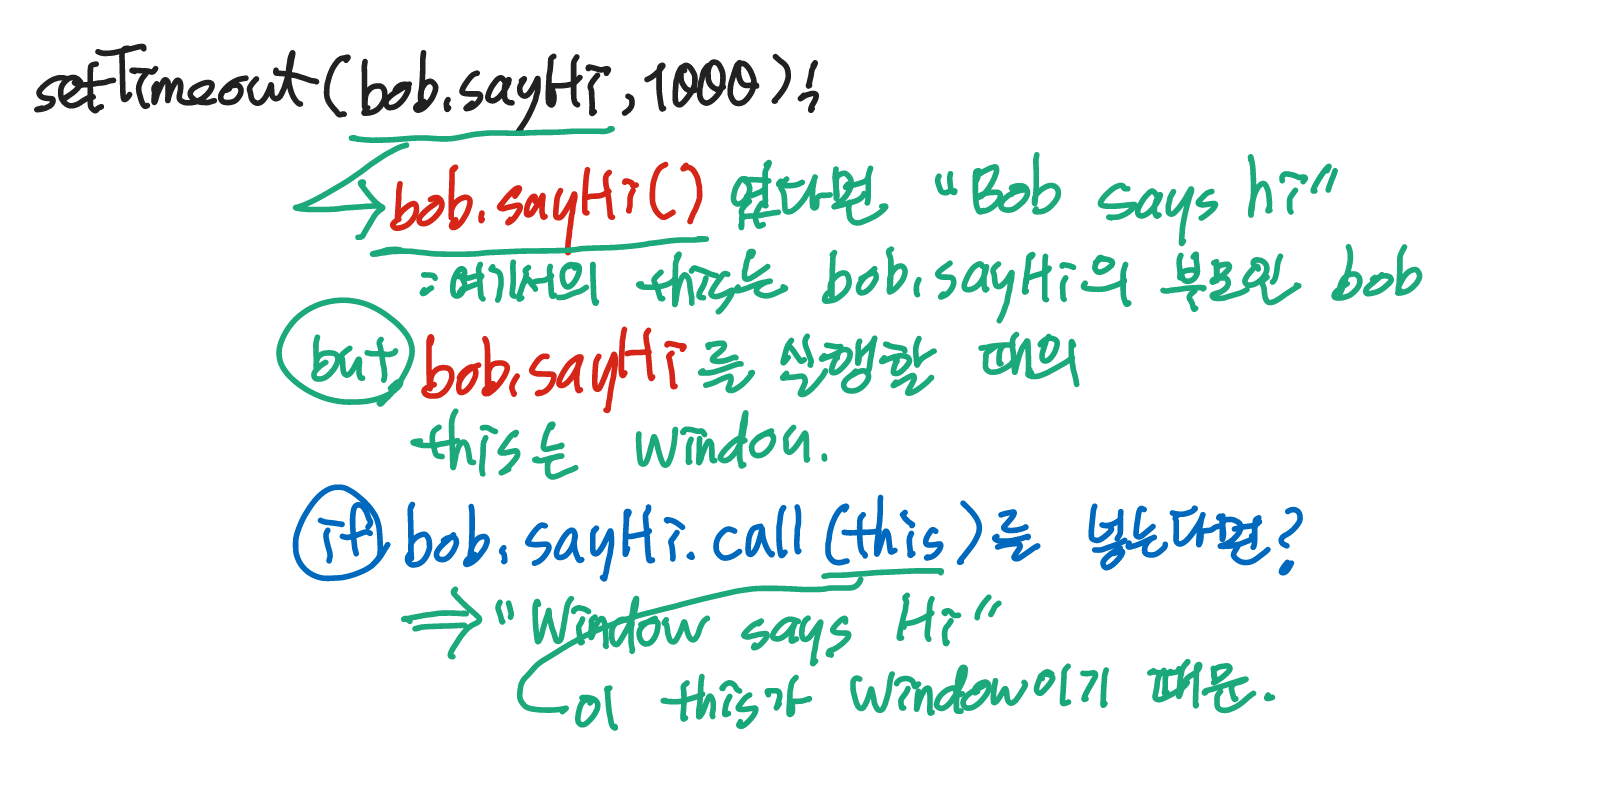 setTimeout(bob.sayHi,1000);
bob.sayHi() 였다면 "Bob says hi"
: 여기서의 this는 bob.sayHi의 부모인 bob
but bob.sayHi를 실행할 때의
this는 window.
if bob.sayHi.call(this)를 넣는다면?
⇒ "Window says Hi"
이 this가 window이기 때문.